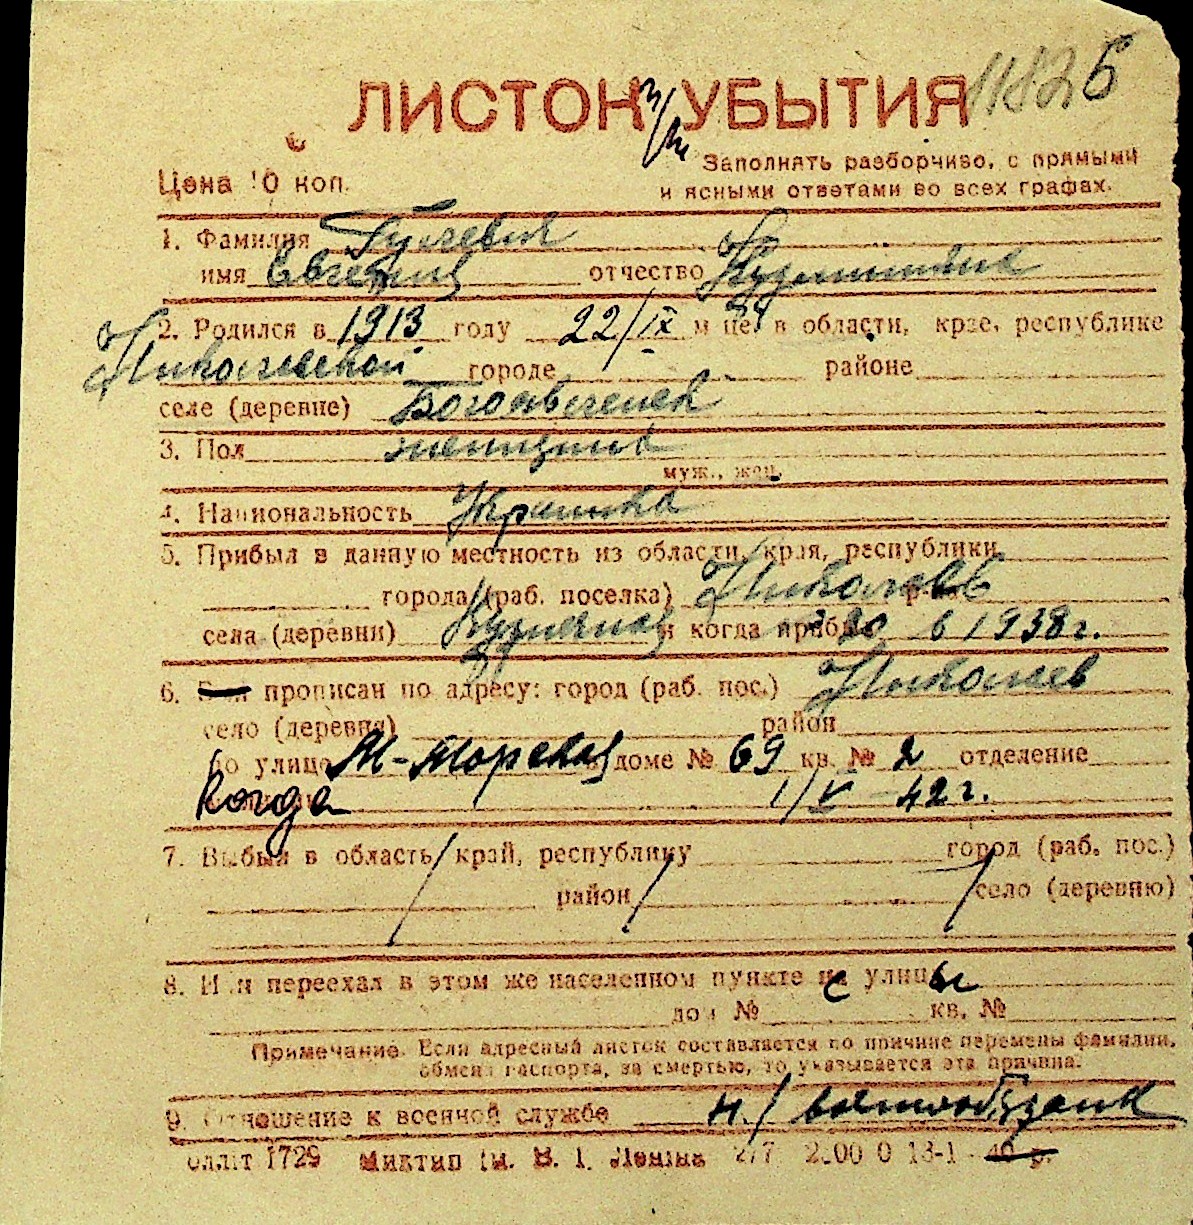 11826
ЛИСТОК УБЫТИЯ
Цена 10 коп.
Заполнять разборчиво, с прямыми
и ясными ответами во всех графах.
1. Фамилия
имя Евгения отчество Кузьминична
2. Родился в 1913 году 22/IX м-це, в области, крае, республике
Николаевской городе районе
селе (деревне)
3. Пол женщина
муж., жен.
4. Национальность Украинка
5. Прибыл в данную местность из области, края, республики
города (раб. поселка) Николаев
села (деревни) и когда прибыл 20 6 1938 г.
6. прописан по адресу: город (раб. пос.) Николаев
село (деревня) район
по улице М-Морская доме № 69 кв. № 2 отделение
Когда 1/V-42 г.
7. Выбыл в область, край, республику город (раб. пос.)
район село (деревню)
8. Или переехал в этом же населенном пункте с улицы
дом № кв. №
Примечание. Если адресный листок составляется по причине перемены фамилии,
обмена паспорта, за смертью, то указывается эта причина.
9. Отношение к военной службе н/
1729 Миктип ім. В. І. Леніна 277 13-1 40 р.